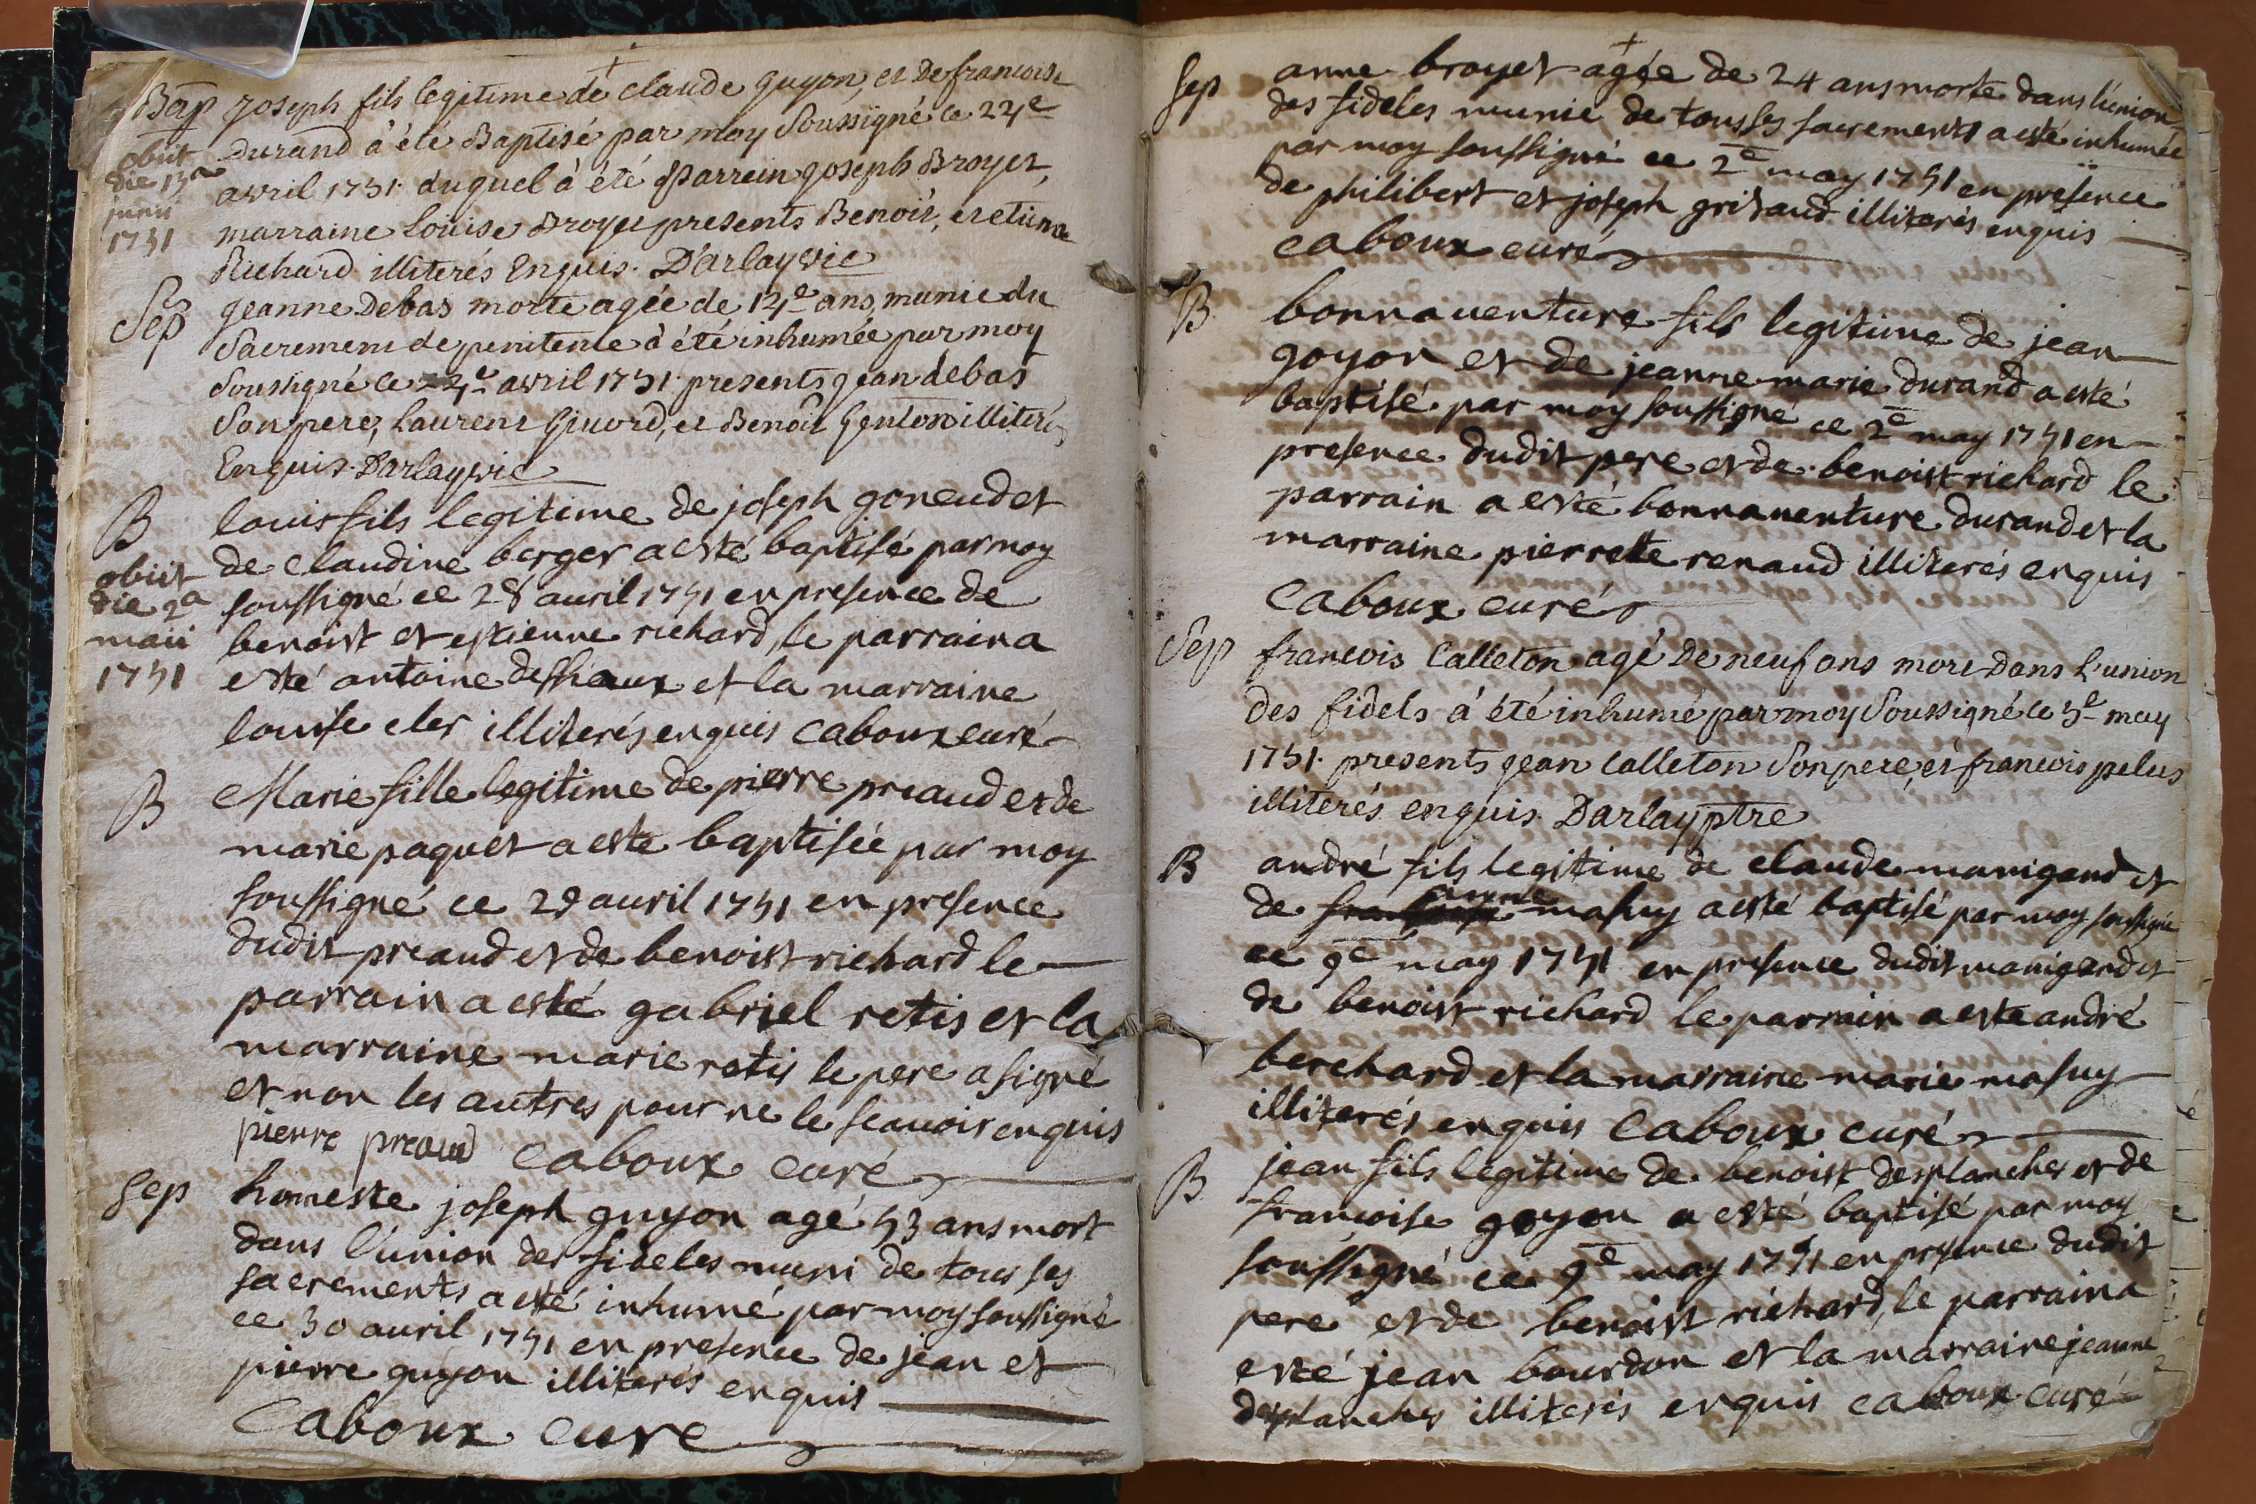 Bap joseph fils legitime de claude guyon, et de francoise
obiit durand à été Baptisé par moy Soussigné le 24e
die 13a
junii avril 1751. duquel à été Parrein joseph Broyer,
1751 marraine Loüise Broyer presents Benoit, et etiene
Richard illiterés Enquis. D'arlay vic
Sep jeanne Debas morte agée de 12e ans, munie du
Sacrement de penitence à été inhumée par moy
Soussigné le 24e avril 1751 presents jean debas
Son pere, Laurent Givord, et Benoît Genton illiterés
Enquis. Darlay vic
B louis fils legitime de joseph goneud et
obiit de claudine berger a esté baptisé par moy
die 2a soussigné ce 28 auril 1751 en presence de
maii benoist et estienne richard, le parrain a
1751 esté antoine desheaux et la marraine
louise cler illiterés enquis caboux curé
B Marie fille legitime de pierre preaud et de
marie paquet a este baptisée par moy
soussigné ce 29 auril 1751 en presence
dudit preaud et de benoist richard le
parrain a esté gabriel retis et la
marraine marie retis le pere a signé
et non les autres pour ne le scauoir enquis
pierre preaud caboux curé
Sep honneste joseph guyon agé 53 ans mort
dans l'union des fideles muni de tous ses
sacrements a esté inhumé par moy soussigné
ce 30 auril 1751 en presence de jean et
pierre guyon illiterés enquis
Caboux cure
Sep anne broyer agée de 24 ans morte dans l'union
des fideles munie de tous ses sacrements a esté inhumée
par moy soussigné ce 2e may 1751 en presence
de philibert et joseph gritaud illiterés enquis
caboux curé
B bonnauenture fils legitime de jean
goyon et de jeanne marie durand a esté
baptisé par moy soussigné ce 2e may 1751 en
presence dudit pere et de benoist richard le
parrain a esté bonnauenture durand et la
marraine pierrette renaud illiterés enquis
Caboux curé
Sep francois Calleton agé de neuf ans mort dans l'union
des fidels à été inhumé par moy Soussigné le 5e may
1751. presents jean Calleton Son pere, et francois pelus
illiterés enquis. Darlay ptre
B andré fils legitime de claude manigand et
anne
de masuy a esté baptisé par moy soussigné
ce 9e may 1751 en presence dudit manigand et
de benoist richard le parrain a este andré
berchard et la marraine marie masuy
illiterés enquis Caboux curé
B jean fils legitime de benoist desplanches et de
francoise goyon a esté baptisé par moy
soussigné ce 9e may 1751 en presence dudit
pere et de benoist richard, le parrain a
esté jean bourdon et la marraine jeanne
desplanches illiterés enquis caboux curé